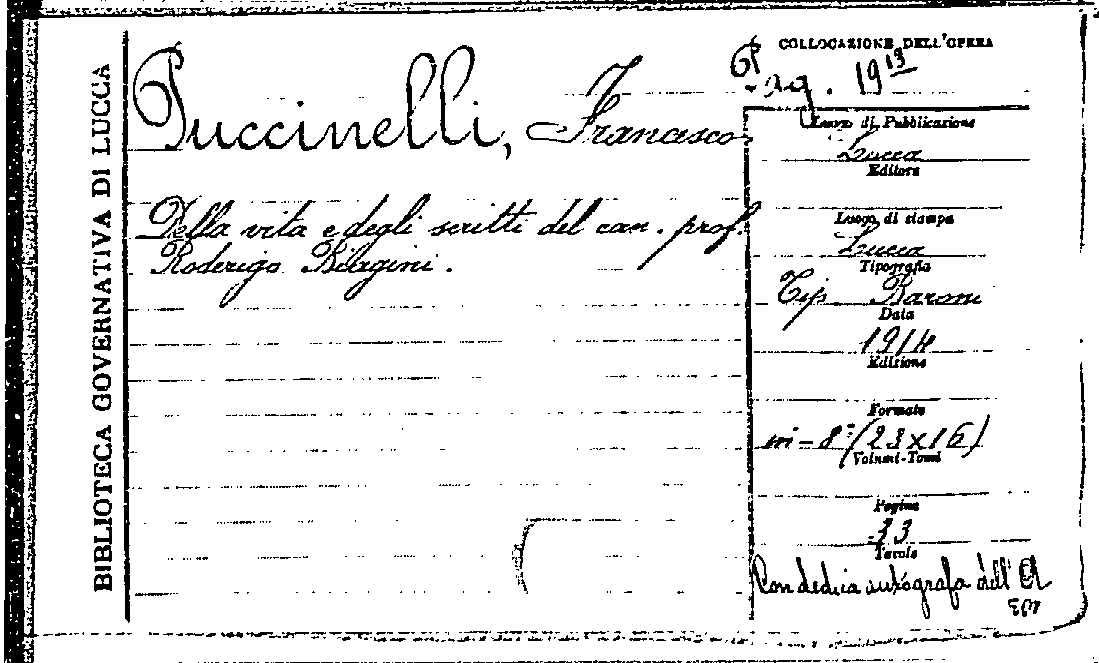 BIBLIOTECA GOVERNATIVA DI LUCCA
Puccinelli, Francesco
Della vita e degli scritti del can. prof.
Roderigo Biagini.
COLLOCAZIONE DELL'OPERA
19 13
Luogo di Pubblicazione
Lucca
Editore
Luogo di stampa
Lucca
Tipografia
Tip. Baroni
Data
1914
Edizione
Formato
in-8° (23x16)
Volumi-Tomi
Pagine
33
Tavole
Con dedica autógrafa dell' A